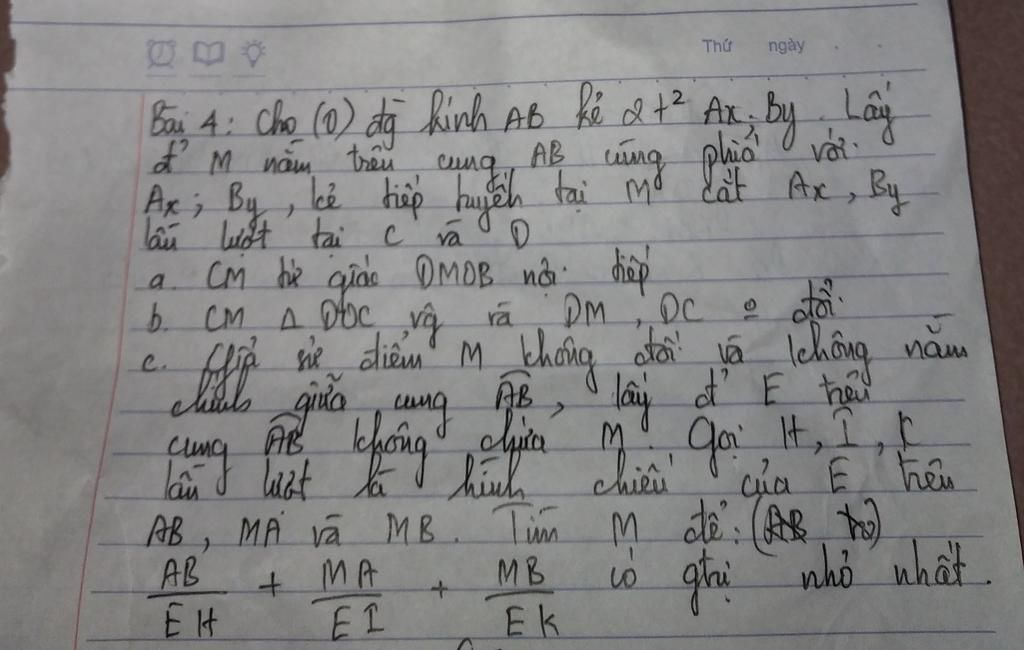 Thứ ngày
Bài 4: Cho (O) đg kính AB kẻ 2 t² Ax, By. Lấy
đ' M nằm trên cung AB cùng phía với
Ax; By, kẻ tiếp tuyến tại M cắt Ax, By
lần lượt tại C và D
a. CM tứ giác DMOB nội tiếp
b. CM Δ DOC vg và DM, DC = đổi
c. Giả sử điểm M không đổi và không nằm
chính giữa cung AB, lấy đ' E trên
cung AB không chứa M. Gọi H, I, K
lần lượt là hình chiếu của E trên
AB, MA và MB. Tìm M để: (AB to)
AB/EH + MA/EI + MB/EK có gtrị nhỏ nhất.